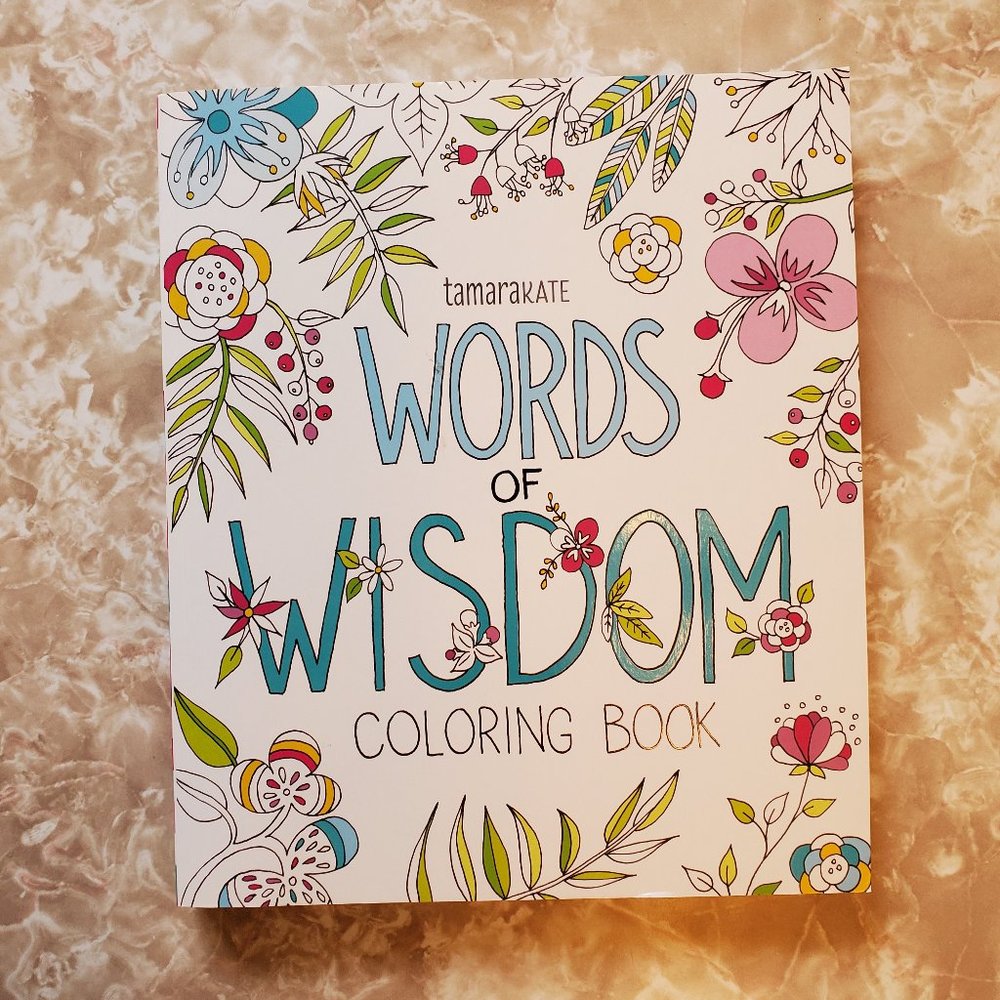 tamaraKATE
WORDS
OF
WISDOM
COLORING BOOK